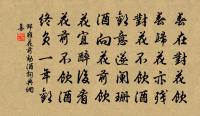 春在對花飲
春歸花亦殘
對花不飲酒
歡意遂闌珊
酒向花前飲
花宜醉後看
花前不飲酒
終負一年歡
邵雍花前勸酒詞典網